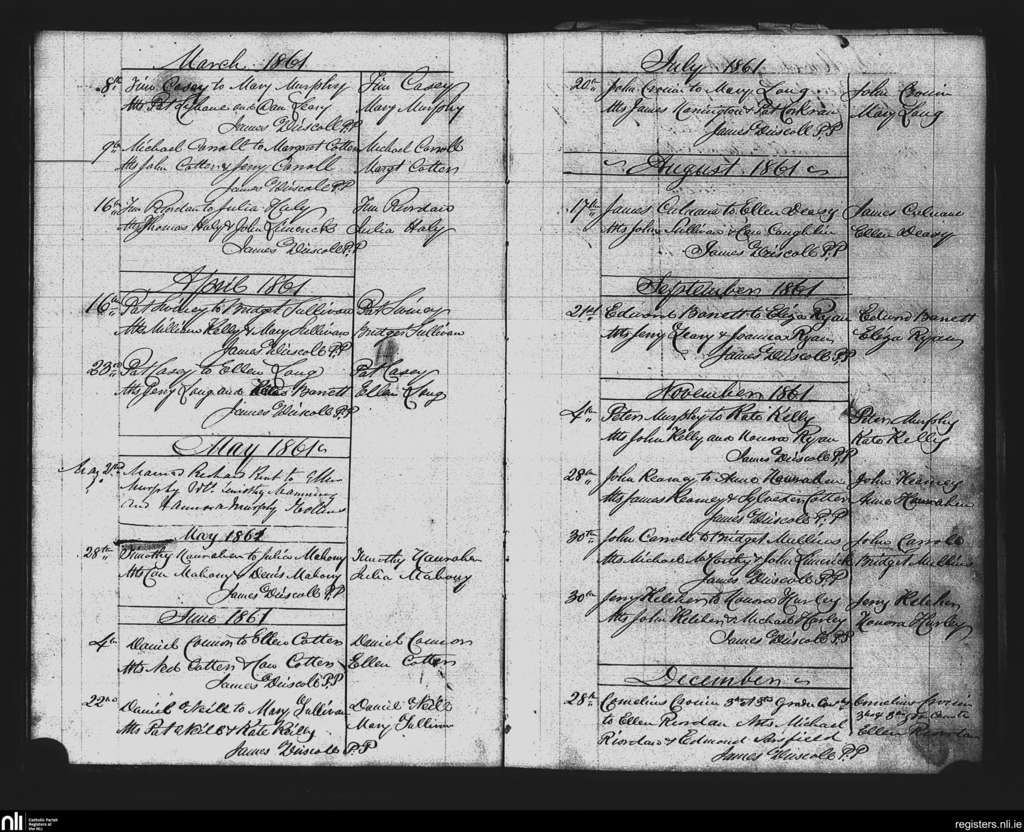 March 1861
8th Tim Casey to Mary Murphy Tim Casey
Atts Pat Lehane and Dan Leary Mary Murphy
James Driscoll P.P
9th Michael Carroll to Margret Cotter Michael Carroll
Atts John Cotter & Jerry Carroll Margt Cotter
James Driscoll P.P
16th Tim Riordan to Julia Haly Tim Riordan
Atts Thomas Haly & John Limerick Julia Haly
James Driscoll P.P
April 1861
16th Pat Swiney to Bridget Sullivan Pat Swiney
Atts William Kelly & Mary Sullivan Bridget Sullivan
James Driscoll P.P
23rd Pat Casey to Ellen Long Pat Casey
Atts Jerry Long and Barrett Ellen Long
James Driscoll P.P
May 1861
May 2nd Married Richard Kent to Ellen
Murphy Wts Timothy Manning
and Hannora Murphy
May 1861
28th Timothy Hanrahan to Julia Mahony Timothy Hanrahan
Atts Con Mahony & Denis Mahony Julia Mahony
James Driscoll P.P
June 1861
4th Daniel Connor to Ellen Cotter Daniel Connor
Atts Ned Cotter & Cotter Ellen Cotter
James Driscoll P.P
22nd Daniel Neill to Mary Sullivan Daniel Neill
Atts Pat Neill & Kate Kelly Mary Sullivan
James Driscoll P.P
July 1861
20th John Cronin to Mary Long John Cronin
Atts James & Pat Corkran Mary Long
James Driscoll P.P
August 1861
17th James Culnane to Ellen Deasy James Culnane
Atts John Sullivan & Coughlin Ellen Deasy
James Driscoll P.P
September 1861
21st Edward Barrett to Eliza Ryan Edward Barrett
Atts Jerry Leary & Joanna Ryan Eliza Ryan
James Driscoll P.P
November 1861
4th Peter Murphy to Kate Kelly Peter Murphy
Atts John Kelly and Honora Ryan Kate Kelly
James Driscoll P.P
28th John Kearney to Anne Hanrahan John Kearney
Atts James Kearney & Sylvester Cotter Anne Hanrahan
James Driscoll P.P
30th John Carroll to Bridget Mullins John Carroll
Atts Michael McCarthy & John Limerick Bridget Mullins
James Driscoll P.P
30th Jerry Keleher to Honora Hurley Jerry Keleher
Atts John Keleher & Michael Hurley Honora Hurley
James Driscoll P.P
December
28th Cornelius Cronin 3rd & 3rd Grade Cornelius Cronin
to Ellen Riordan Atts Michael 3rd & 3rd
Riordan & Edmond Ellen Riordan
James Driscoll P.P
nli Catholic Parish
Registers at
the NLI
registers.nli.ie